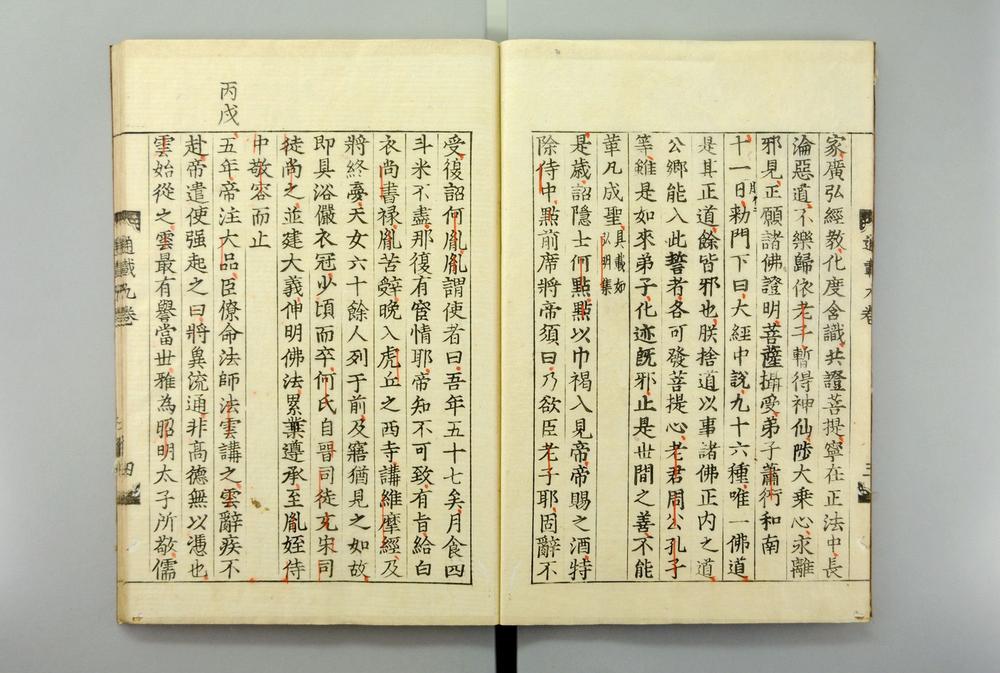 家廣弘經教化度含識共證菩提寧在正法中長
淪惡道不樂歸依老子暫得神仙陟大乗心求離
邪見正願諸佛證明菩薩攝受弟子蕭衍和南
十一日勑門下曰大經中說九十六種唯一佛道
是其正道餘皆邪也朕捨道以事諸佛正内之道
公卿能入此誓者各可發菩提心老君周公孔子
等雖是如來弟子化迹既邪止是世間之善不能
革凡成聖
具載如
弘明集
是歳詔隱士何點點以巾褐入見帝帝賜之酒特
除侍中點前席將帝須曰乃欲臣老子耶固辭不
受復詔何胤胤謂使者曰吾年五十七矣月食四
斗米不盡那復有宦情耶帝知不可致有旨給白
衣尚書禄胤苦辤晚入虎丘之西寺講維摩經及
將終夢天女六十餘人列于前及寤猶見之如故
即具浴儼衣冠少頃而卒何氏自晉司徒充宋司
徒尚之並建大義伸明佛法累葉遵承至胤姪侍
中敬容而止
丙戌
五年帝注大品臣僚命法師法雲講之雲辭疾不
赴帝遣使强起之曰將㒷流通非高德無以憑也
雲始從之雲最有譽當世雅為昭明太子所敬儒
通載九卷